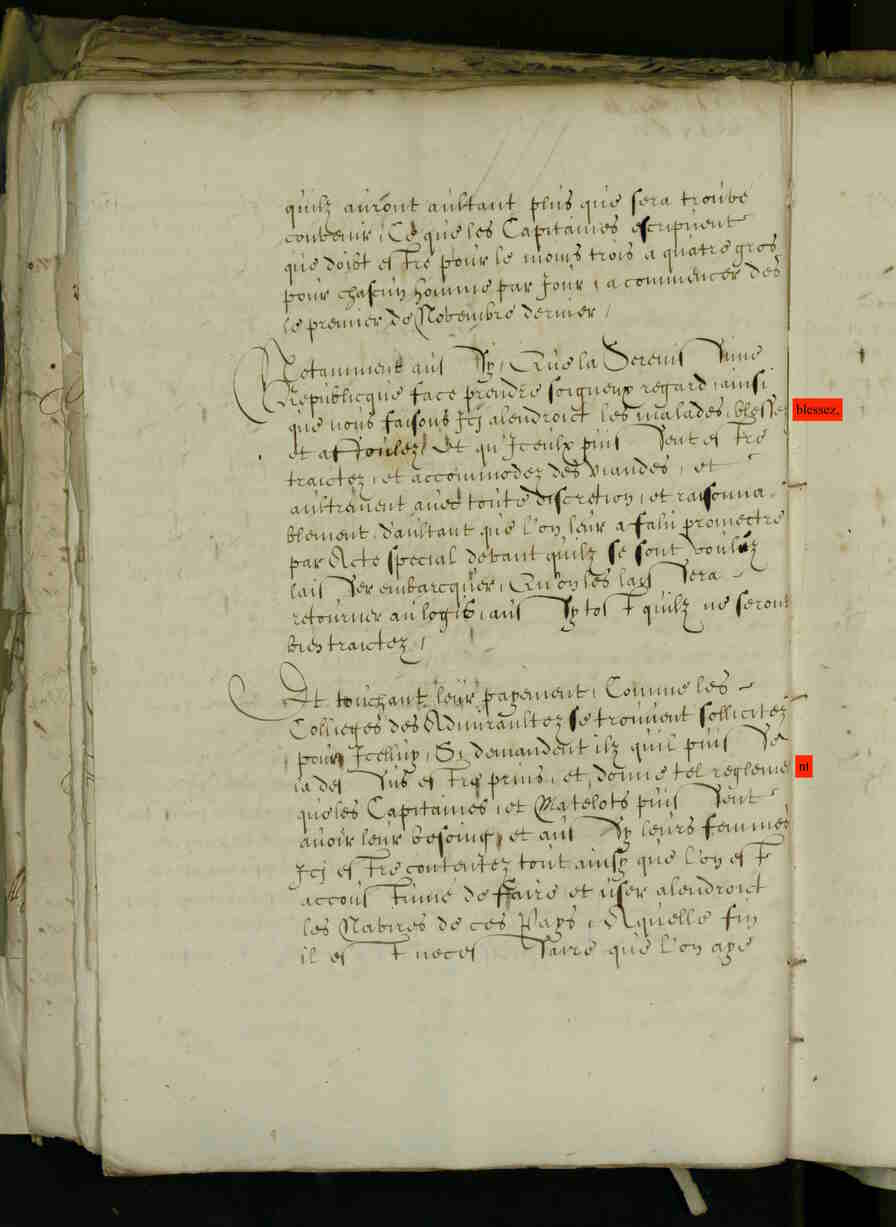 quilz auront aultant plus que sera trouve
convenir, Ce que les Capitaines escripvent
que doibt estre pour le moins trois a quatre gros
pour chascun homme par Jour, a commencer des
le premier de Novembre dernier,
Notamment aussy, Que la Serenissime
Republicque face prendre soigneux regard, ainsi
que nous faisons Icj alendroict les malades, blessez
blessez,
et affoulez, Et qu'Iceulx puissent estre
traictez, et accommodez des viandes, et
aultrement avec toute discretion, et raisonna-
blement, d'aultant que l'on leur a falu promectre
par Acte special devant quilz se sont voulez
laisser embarcquer, Qu'on les layssera
retourner au logis, aussy tost quilz ne seront
bien traictez,
Et touchant leur payement, Comme les
Collieges des Admiraultez se trouvent sollicitez
pour Icelluy, Sy demandent ilz quil puisse
la dessus estre prins, et donne tel regleme
nt
que les Capitaines, et Matelots puissent
avoir leur besoing, et aussy leurs femmes
Icj estre contentez tout ainsy que l'on est
accoustume de ffaire et user alendroict
les Navires de ces Pays, A quelle fin
il est necessaire que l'on aye